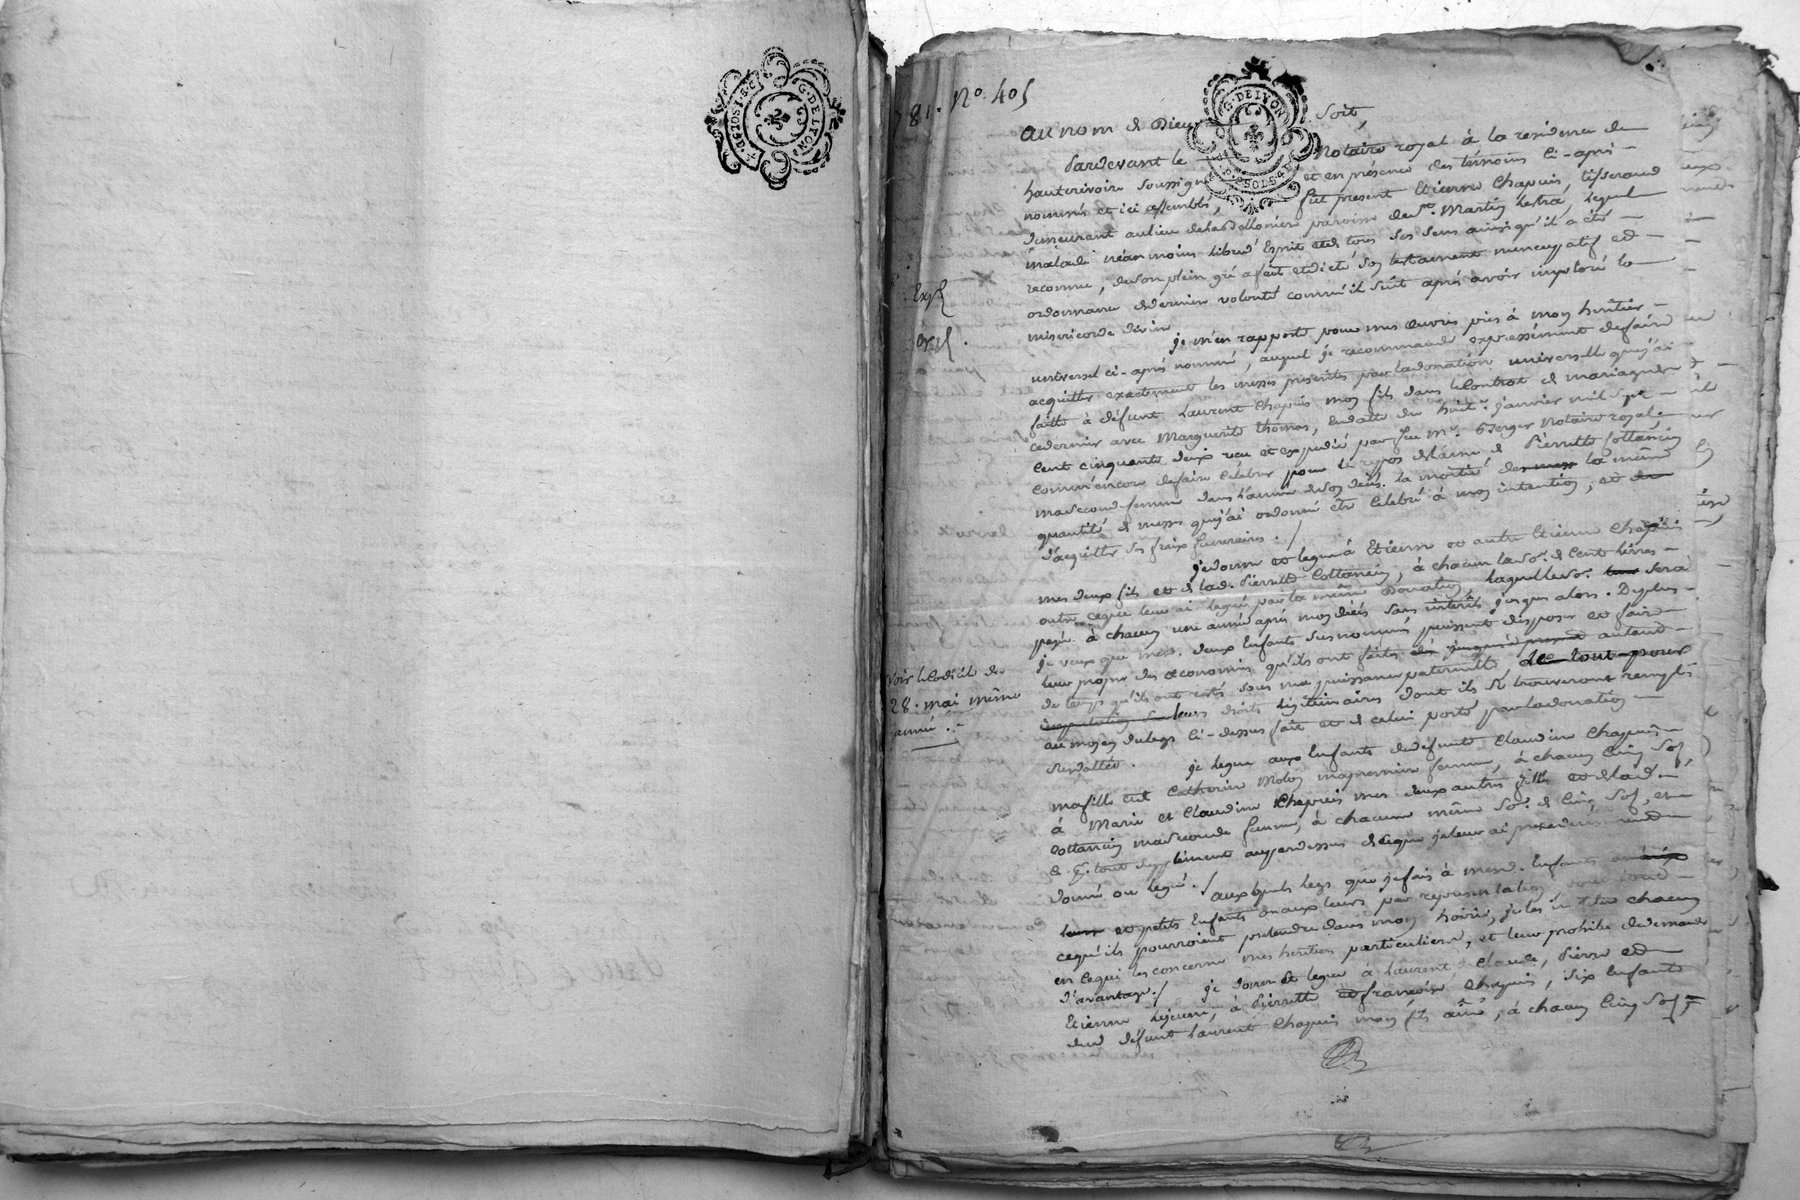 G. DE LYON
G. DE LYON
781. No. 405
au nom de Dieu Soit,
Pardevant le Notaire royal à la residence de
hauterivoire soussigné et en présence des témoins ci-après
nommés et ici assemblés, fut present Etienne Chapuis, tisserand
demeurant au lieu de paroisse de St. Martin Lestra, lequel
malade néanmoins libre d'Esprit et de tous ses sens ainsi qu'il a été
reconnu, de son plein gré a fait et dicté son testament nuncupatif et
ordonnance de derniere volonté comme il suit après avoir imploré la
misericorde divine
Exp
exp.
je m'en rapporte pour mes œuvres pies à mon héritier
universel ci-après nommé, auquel je recommande expressément de faire
acquitter exactement les messes prescrites par la donation universelle que j'ai
faitte à défunt Laurent Chapuis mon fils dans le Contrat de mariage de
ce dernier avec Marguerite Thomas, en datte du huit janvier mil sept
cent cinquante deux reçu et expédié par feu Me. Berger Notaire royal,
comm'encore de faire célébrer pour le repos de l'ame de Pierrette Cottancin
ma seconde femme dans l'année de son décès la moitié de la même
quantité de messes que j'ai ordonné être célébré à mon intention, et
d'acquitter ses fraix funeraires.
je donne et legue à Etienne et autre Etienne Chapuis
mes deux fils et de lad. Pierrette Cottancin, à chacun la so. de Cent livres
outre ce que leur ai legué par la même Donation laquelle so. sera
payée à chacun une année après mon décès sans interets jusques alors. De plus
je veux que mesd. deux Enfants susnommés puissent disposer et faire
leur propre des œconomies qu'ils ont faites autant
de temps qu'ils ont restés sous ma puissance paternelle, de tout pour
leurs droits légitimaires dont ils se trouveront remplis
au moyen du legs ci-dessus fait et de celui porté par la donation
susdattée.
Voir le Codicile du
28. mai même
année
je legue aux Enfants de défunte Claudine Chapuis
ma fille et de Catherine Molon ma premiere femme, à chacun Cinq Sols,
à Marie et Claudine Chapuis mes deux autres filles et de lad.
Cottancin ma seconde femme, à chacune même So. de Cinq Sols, et
tout supplément au par dessus de ce que je leur ai précédemment
donné ou legué. auxquels legs que je fais à mesd. Enfants
et petits Enfants ou aux leurs par representation, pour tout
ce qu'ils pourroient prétendre dans mon hoirie, je les institue chacun
en ce qui les concerne mes héritiers particuliers, et leur prohibe de demander
d'avantage. je donne et legue à Laurent Claude, Pierre et
Etienne le jeune, à Pierrette et françoise Chapuis, six Enfants
dud. défunt Laurent Chapuis mon fils aîné, à chacun Cinq Sols